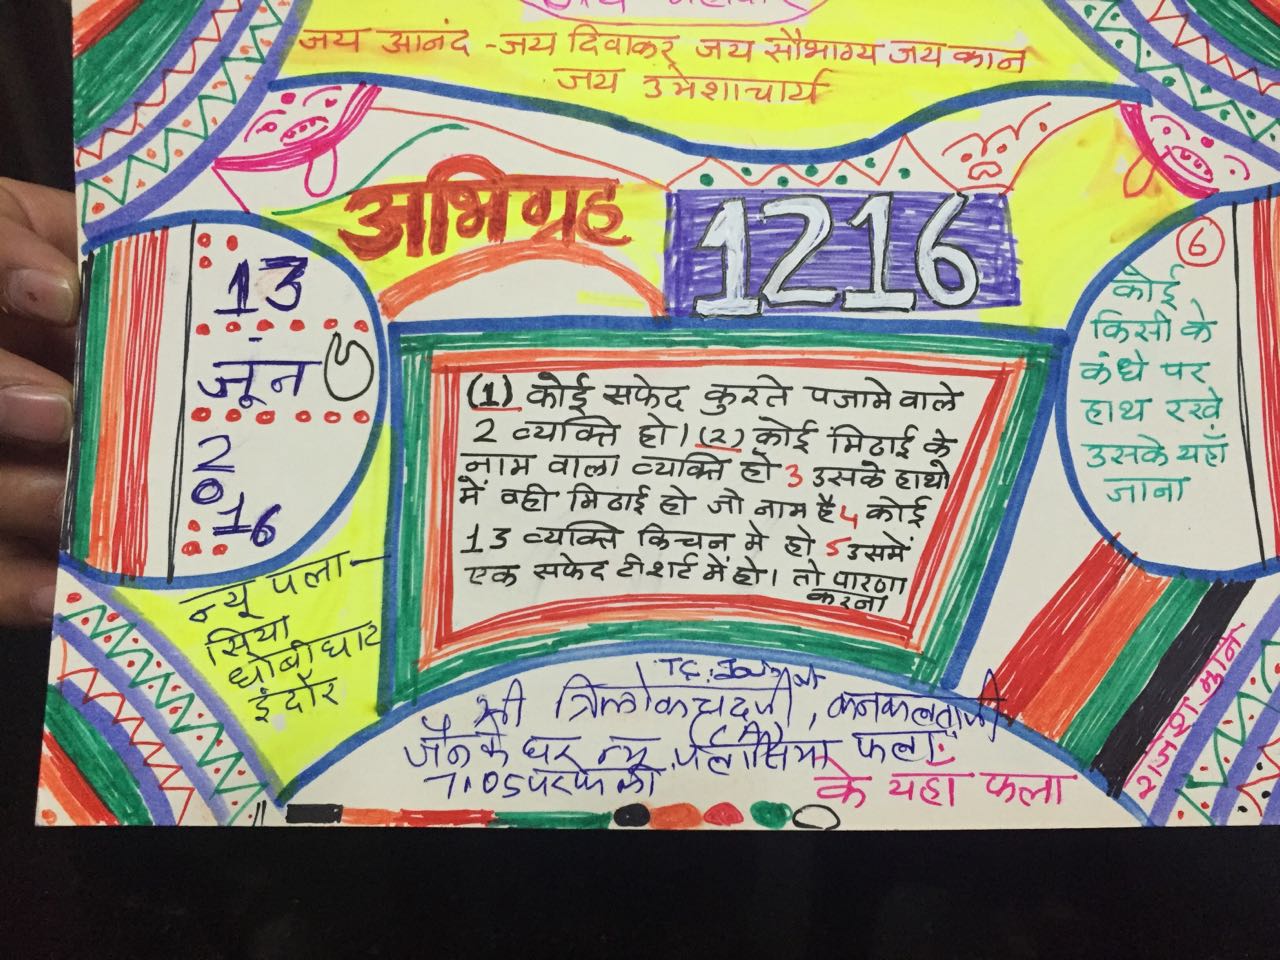 जय महावीर
जय आनंद - जय दिवाकर जय सौभाग्य जय कान
जय उमेशाचार्य
अभिग्रह 1216
13
जून
2016
न्यू पला-
सिया
धोबीघाट
इंदौर
(1) कोई सफेद कुरते पजामे वाले
2 व्यक्ति हो। (2) कोई मिठाई के
नाम वाला व्यक्ति हो 3 उसके हाथो
में वही मिठाई हो जो नाम है 4 कोई
13 व्यक्ति किचन मे हो 5 उसमें
एक सफेद टीशर्ट में हो। तो पारणा
करना
6
कोई
किसी के
कंधे पर
हाथ रखे
उसके यहाँ
जाना
श्री त्रिलोकचदजी, कनकलताजी
जैन के घर न्यू पलासिया फला
(CA)
7.05 पर फली
के यहाँ फला
राजेश मुनि